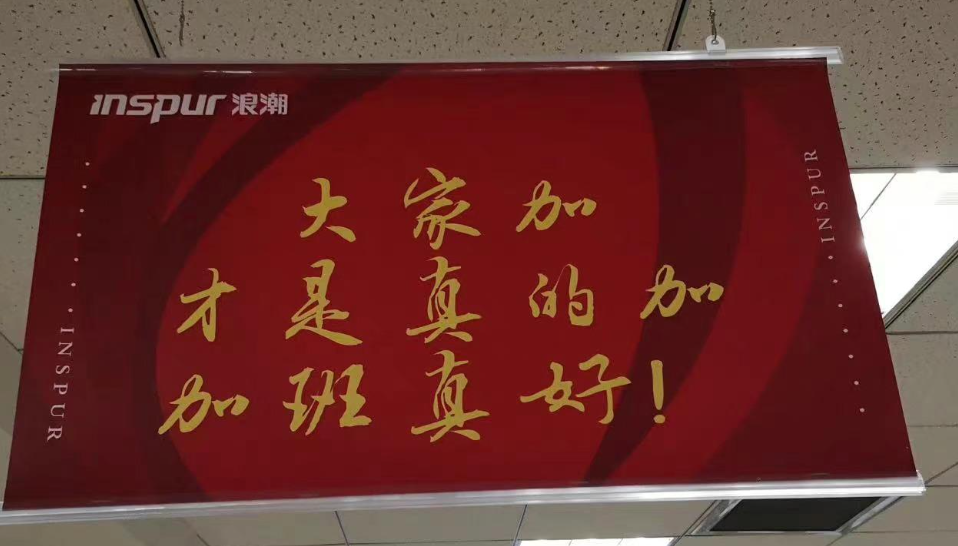 inspur 浪潮
大家加
才是真的加
加班真好！
INSPUR
INSPUR